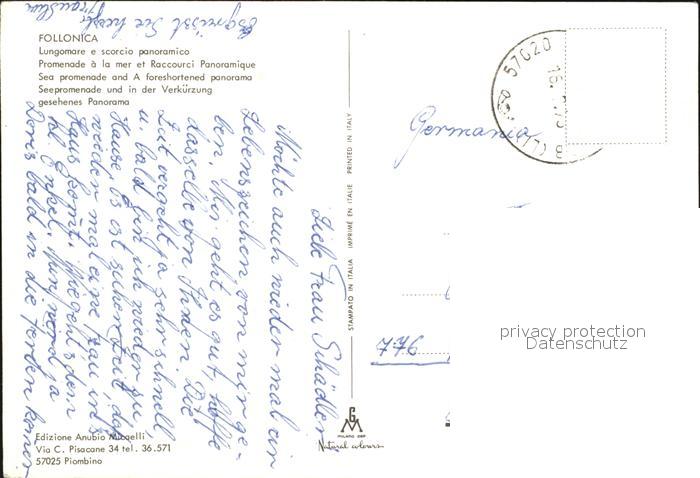 FOLLONICA
Lungomare e scorcio panoramico
Promenade à la mer et Raccourci Panoramique
Sea promenade and A foreshortened panorama
Seepromenade und in der Verkürzung
gesehenes Panorama
Liebe Frau Schädler
Möchte auch wieder mal ein
Lebenszeichen von mir ge-
ben. Mir geht es gut, hoffe
dasselbe von Ihnen. Die
Zeit vergeht ja sehr schnell
u. bald bin ich wieder zu
Hause. Es ist schon Zeit, daß
wieder mal eine Frau ins
Haus kommt. Wie geht's dem
Enkel. Nun werd ja
Doris bald in die Ferien kommen
Es grüsst Sie
Edizione Anubio
Via C. Pisacane 34 tel. 36.571
57025 Piombino
STAMPATO IN ITALIA IMPRIMÉ EN ITALIE PRINTED IN ITALY
MILANO DEP
Natural colours
57020
16.
Germania
776
privacy protection
Datenschutz